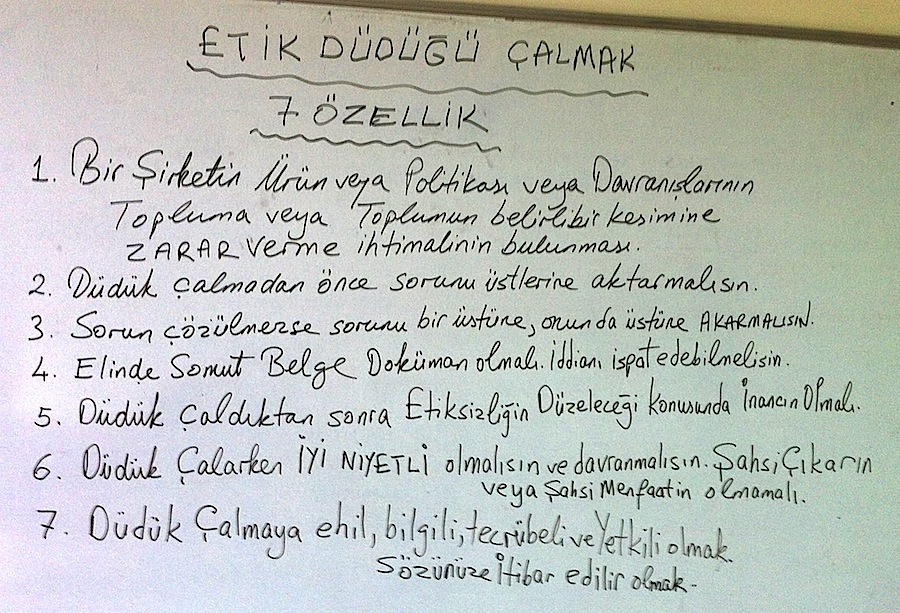 ETİK DÜDÜĞÜ ÇALMAK
7 ÖZELLİK
1. Bir Şirketin Ürün veya Politikası veya Davranışlarının
Topluma veya Toplumun belirlibir kesimine
ZARAR Verme ihtimalinin bulunması.
2. Düdük çalmadan önce sorunu üstlerine aktarmalısın.
3. Sorun çözülmezse sorunu bir üstüne, onunda üstüne AKARMALISIN.
4. Elinde Somut Belge Doküman olmalı. İddianı ispat edebilmelisin.
5. Düdük Çaldıktan sonra Etiksizliğin Düzeleceği konusunda İnancın Olmalı.
6. Düdük Çalarken İYİ NİYETLİ olmalısın ve davranmalısın. Şahsi Çıkarın
veya Şahsi Menfaatin olmamalı.
7. Düdük Çalmaya ehil, bilgili, tecrübeli ve Yetkili olmak.
Sözünüze İtibar edilir olmak.